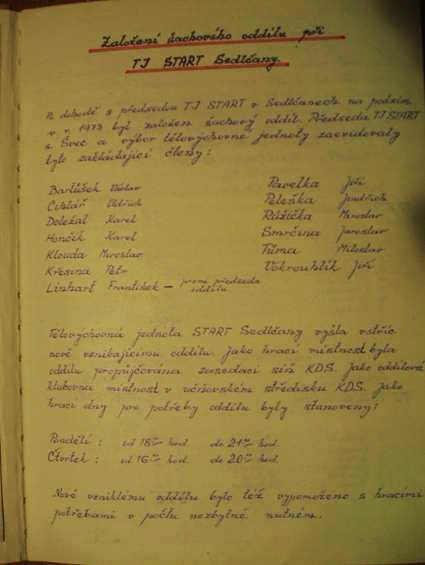 Založení šachového oddílu při
TJ START Sedlčany.
Z dohodě s předsedou TJ START v Sedlčanech na podzim
v r. 1973 byl založen šachový oddíl. Předseda TJ START
s. Švec a výbor tělovýchovné jednoty zaevidovaly
tyto zakládající členy:
Bartůšek Václav
Cihlář Oldřich
Doležal Karel
Hončík Karel
Klouda Miroslav
Křesina Petr
Linhart František - první předseda
oddílu
Pavelka Jiří
Peleška Jindřich
Růžička Miroslav
Smrčina Jaroslav
Tůma Miloslav
Vokrouhlík Jiří
Tělovýchovná jednota START Sedlčany vyšla vstříc
nově vznikajícímu oddílu. Jako hrací místnost byla
oddílu propůjčována zasedací síň KDS. Jako oddílová
klubovna místnost v učňovském středisku KDS. Jako
hrací dny pro potřeby oddílu byly stanoveny:
Pondělí: od 18 00 hod. do 21 00 hod.
Čtvrtek: od 16 00 hod. do 20 00 hod.
Nově vzniklému oddílu bylo též vypomoženo s hracími
potřebami v počtu nezbytně nutném.